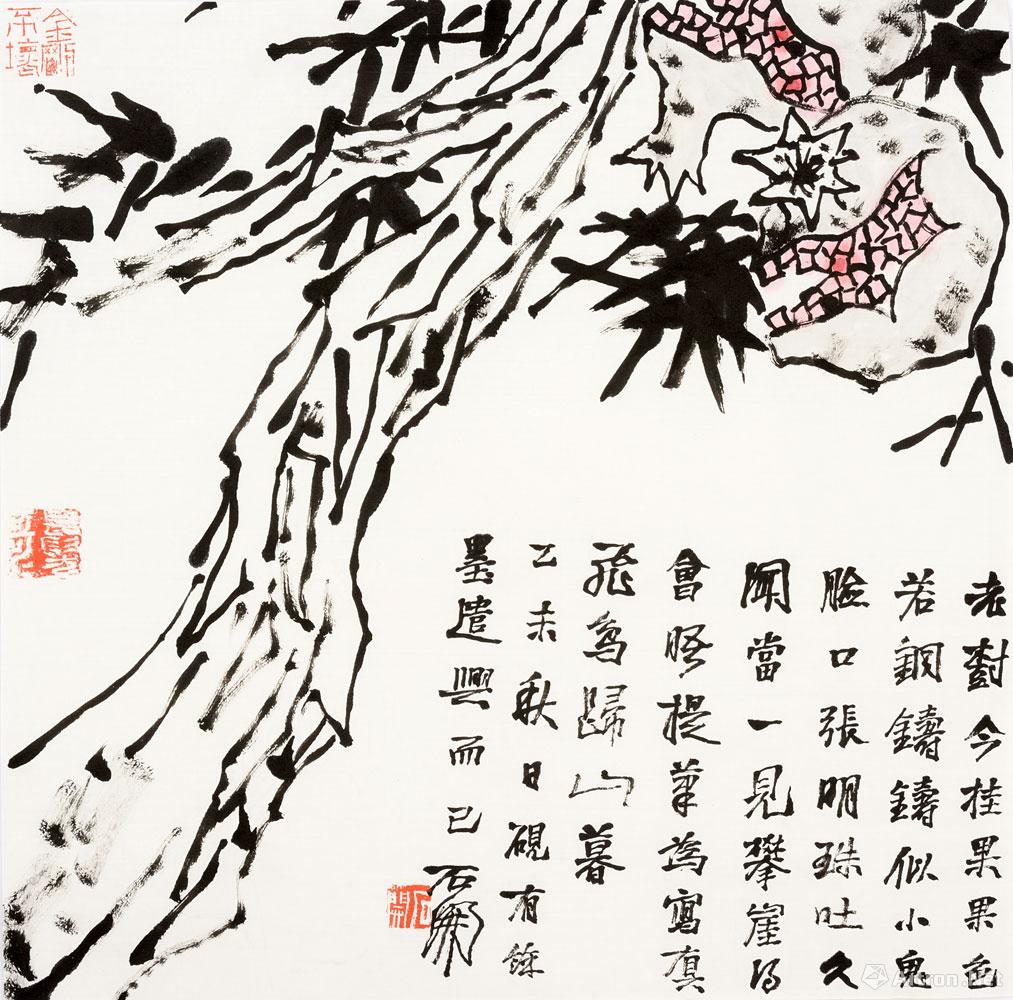 老樹今挂果果色
若銅鑄鑄似小鬼
臉口張明珠吐久
聞當一見攀崖得
會晤提筆為寫真
飛鳥歸山暮
乙未秋日硯有餘
墨遣興而已 石開
石開
金剛不壞
Artron.Net